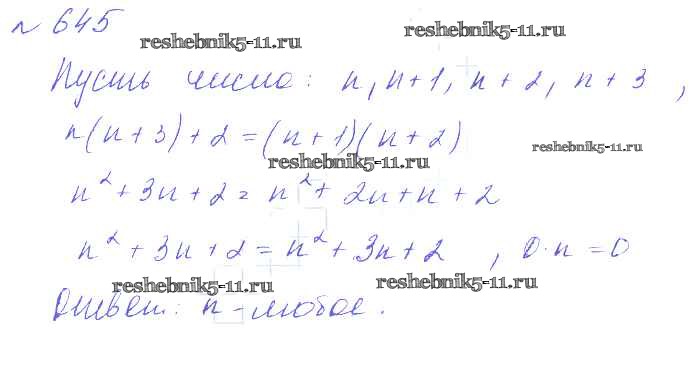 № 645
reshebnik5-11.ru reshebnik5-11.ru
Пусть число: n, n+1, n+2, n+3,
n(n+3)+2=(n+1)(n+2)
reshebnik5-11.ru reshebnik5-11.ru
n²+3n+2= n²+ 2n+n+2
n²+3n+2=n²+3n+2, 0·n=0
reshebnik5-11.ru reshebnik5-11.ru
Ответ: n - любое.